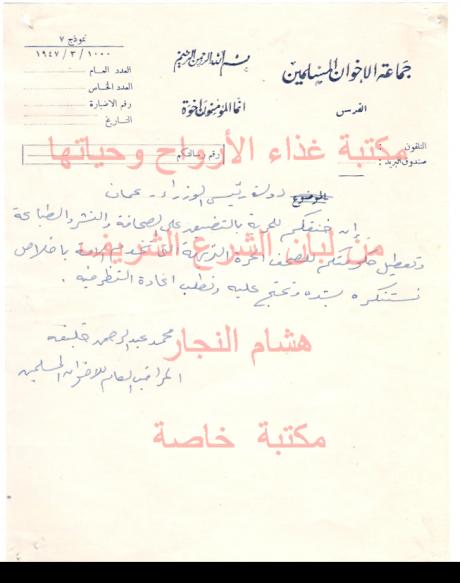 نموذج ٧
١٠٠٠ / ٣ / ١٩٤٧
بسم الله الرحمن الرحيم
جماعة الاخوان المسلمين
العدد العام
العدد الخاص
رقم الاضبارة
التاريخ
انما المؤمنون اخوة
القدس
التلفون :
صندوق البريد :
رقم رسالتكم
مكتبة غذاء الأرواح وحياتها
الموضوع
دولة رئيس الوزراء - عمان
إن خنقكم للحرية بالتضييق على الصحافة والنشر والطباعة
من لبان الشرع الشريف
وتعطيل حكومتكم للصحف الحرة النزيهة التي تخدم باخلاص
نستنكره بشده ونحتج عليه ونطلب اعادة النظر فيه .
محمد عبد الرحمن خليفه
هشام النجار
المراقب العام للاخوان المسلمين
مكتبة خاصة